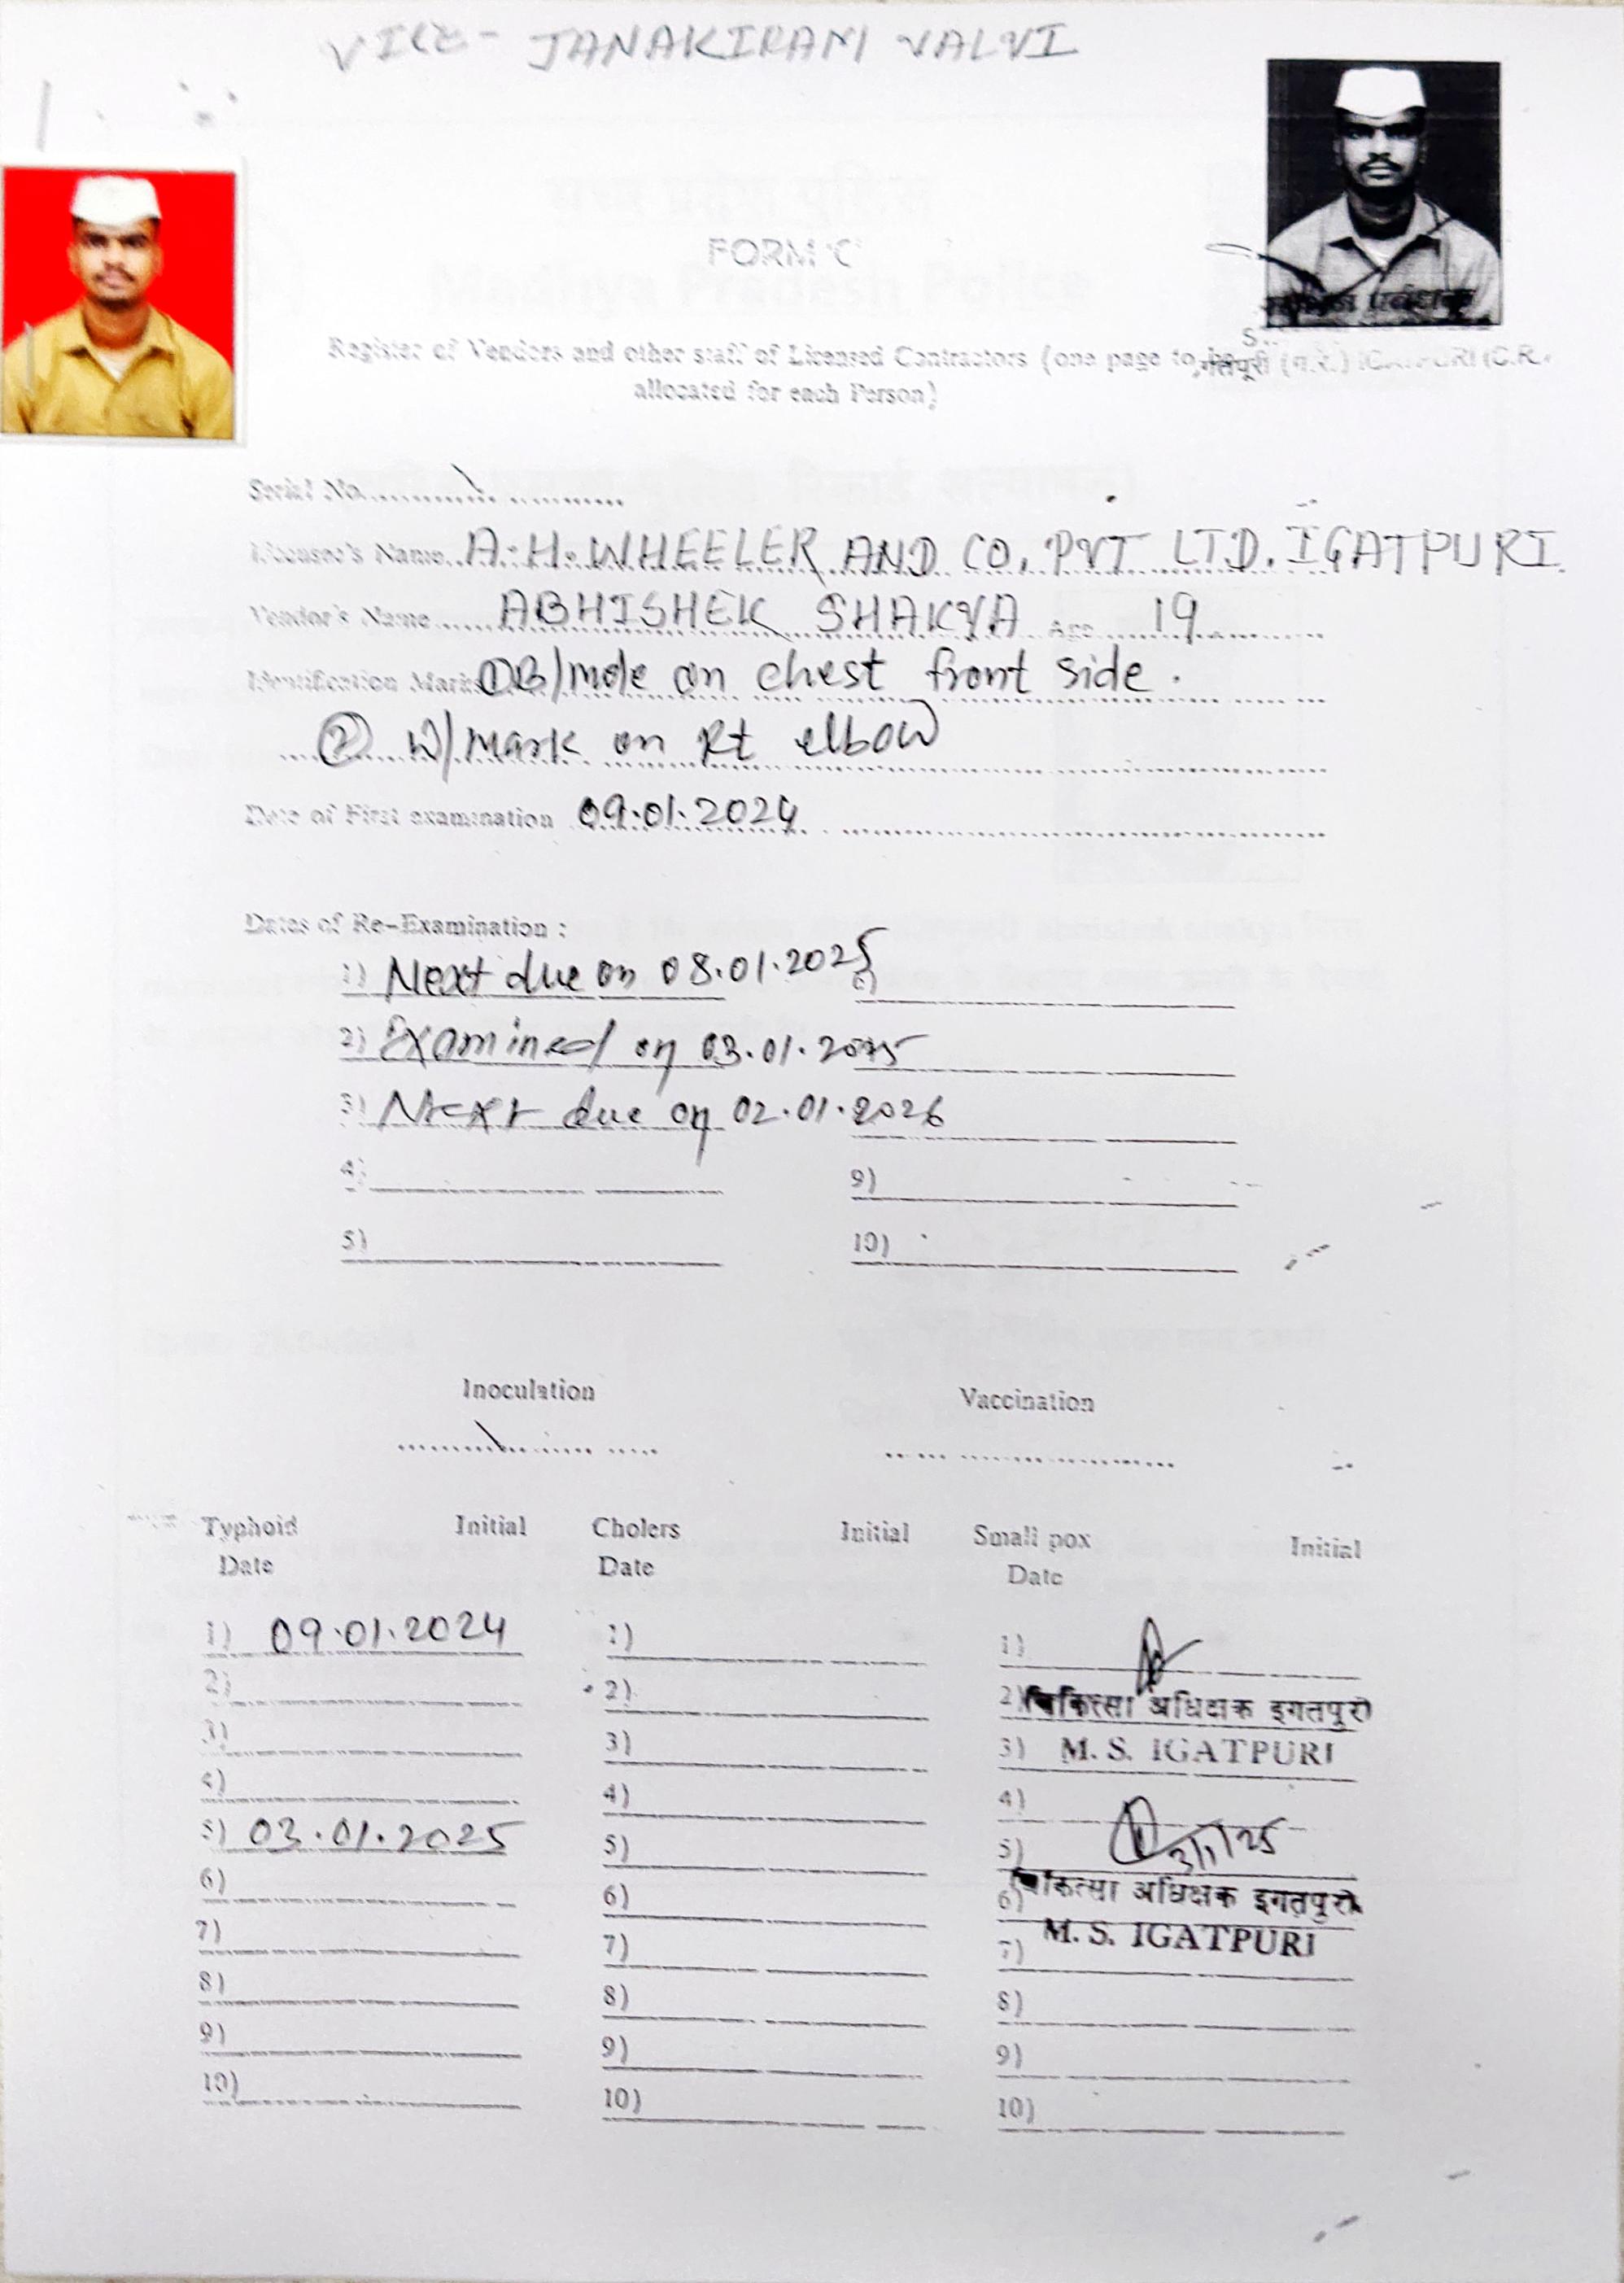 VICE - JANAKIRAM VALVI
FORM 'C'
Register of Vendors and other staff of Licensed Contractors (one page to be
allocated for each Person)
इगतपूरी (म.रे.) IGATPURI (C.R.)
Serial No.
Licensee's Name A. H. WHEELER AND CO, PVT LTD. IGATPURI.
Vendor's Name ABHISHEK SHAKYA Age 19
Identification Marks ① B/mole on chest front side.
② W/mark on Rt elbow
Date of First examination 09.01.2024
Dates of Re-Examination :
1) Next due on 08.01.2025
2) Examined on 03.01.2025
3) Next due on 02.01.2026
4) 9)
5) 10)
Inoculation Vaccination
Typhoid Initial Cholers Initial Small pox Initial
Date Date Date
1) 09.01.2024 1) 1)
2) 2) 2) चिकित्सा अधिक्षक इगतपुरी
3) 3) 3) M. S. IGATPURI
4) 4) 4)
5) 03.01.2025 5) 5) 3/1/25
6) 6) 6) चिकित्सा अधिक्षक इगतपुरी
7) 7) 7) M. S. IGATPURI
8) 8) 8)
9) 9) 9)
10) 10) 10)